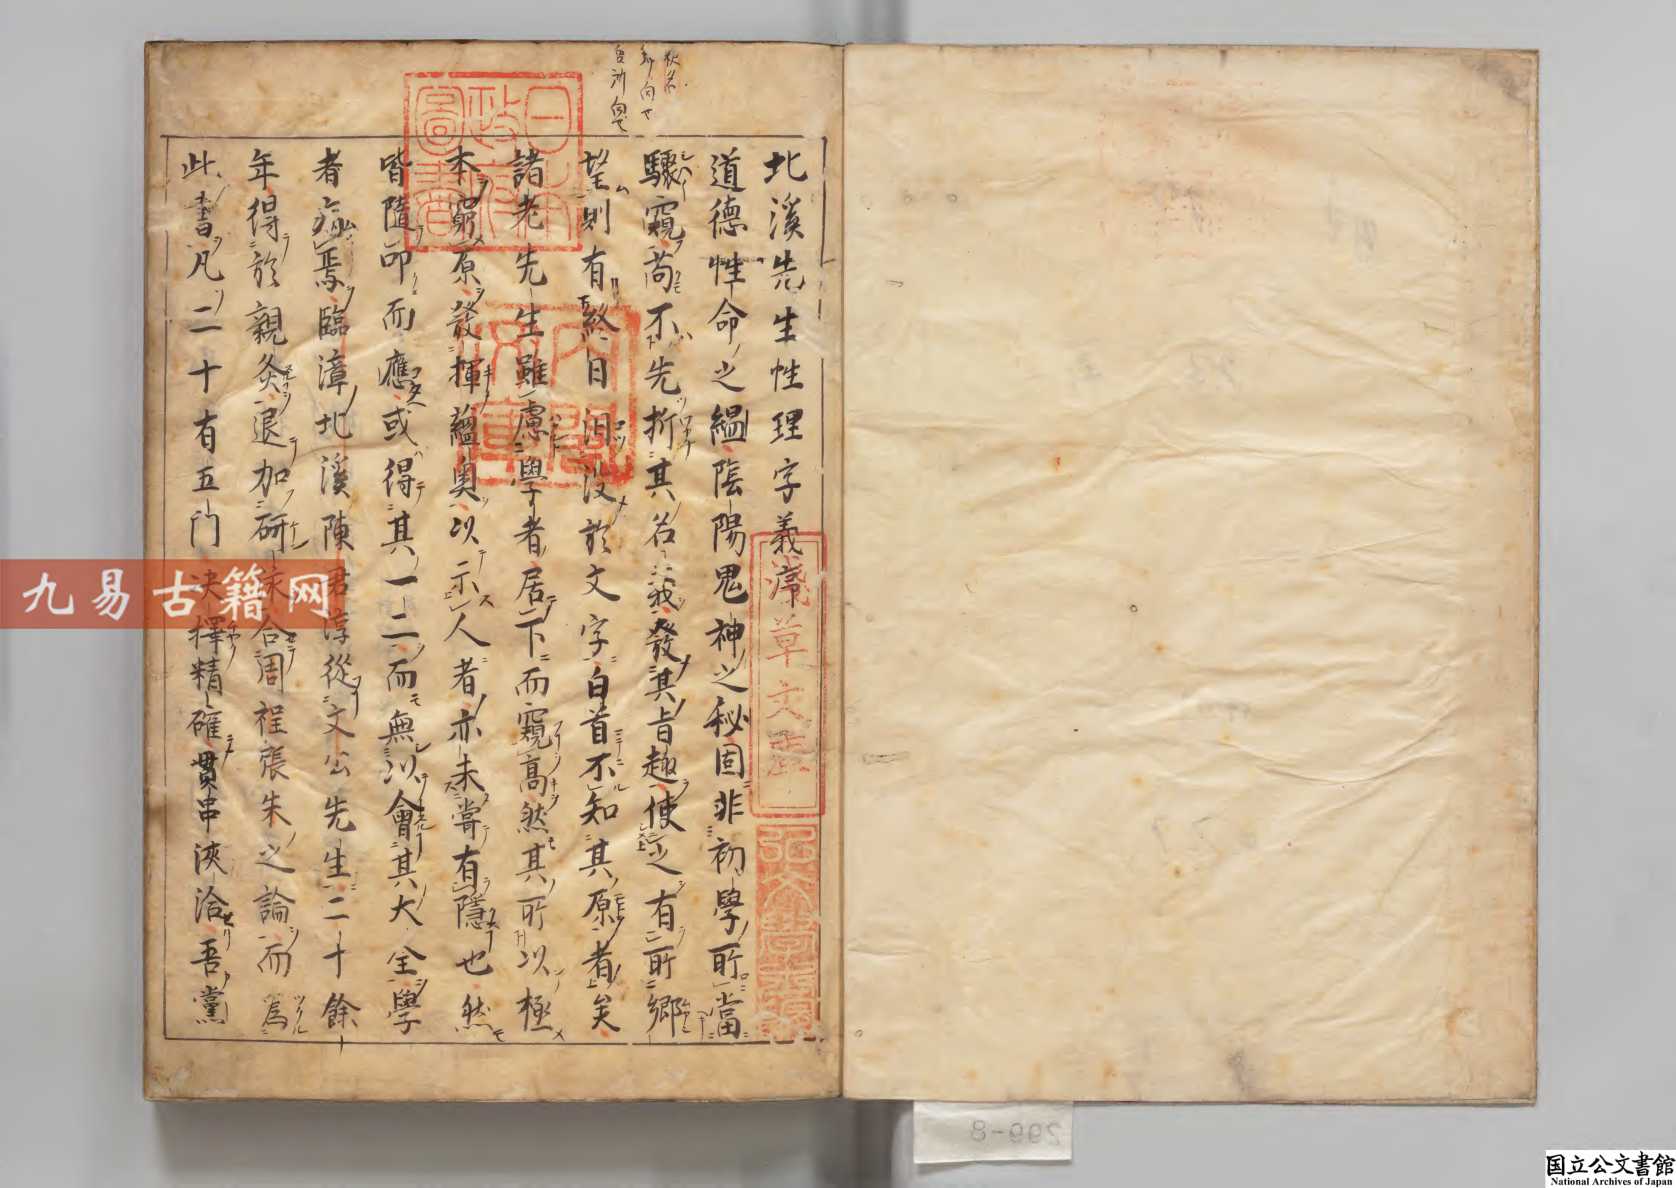 北溪先生性理字義序
道德性命之緼陰陽鬼神之秘固非初學所當
驟窺苟不先折其名義發其旨趣使之有所鄉
望則有終日汨沒於文字白首不知其原者矣
諸老先生雖慮學者居下而窺高然其所以極
本窮原發揮蘊奧以示人者亦未嘗有隱也然
皆隨叩而應或得其一二而無以會其大全學
者病焉臨漳北溪陳君淳從文公先生二十餘
年得於親炙退加研泳合周程張朱之論而為
此書凡二十有五門決擇精確貫串浹洽吾黨
日本政府圖書
淺草文庫
九易古籍网
299-8
国立公文書館
National Archives of Japan